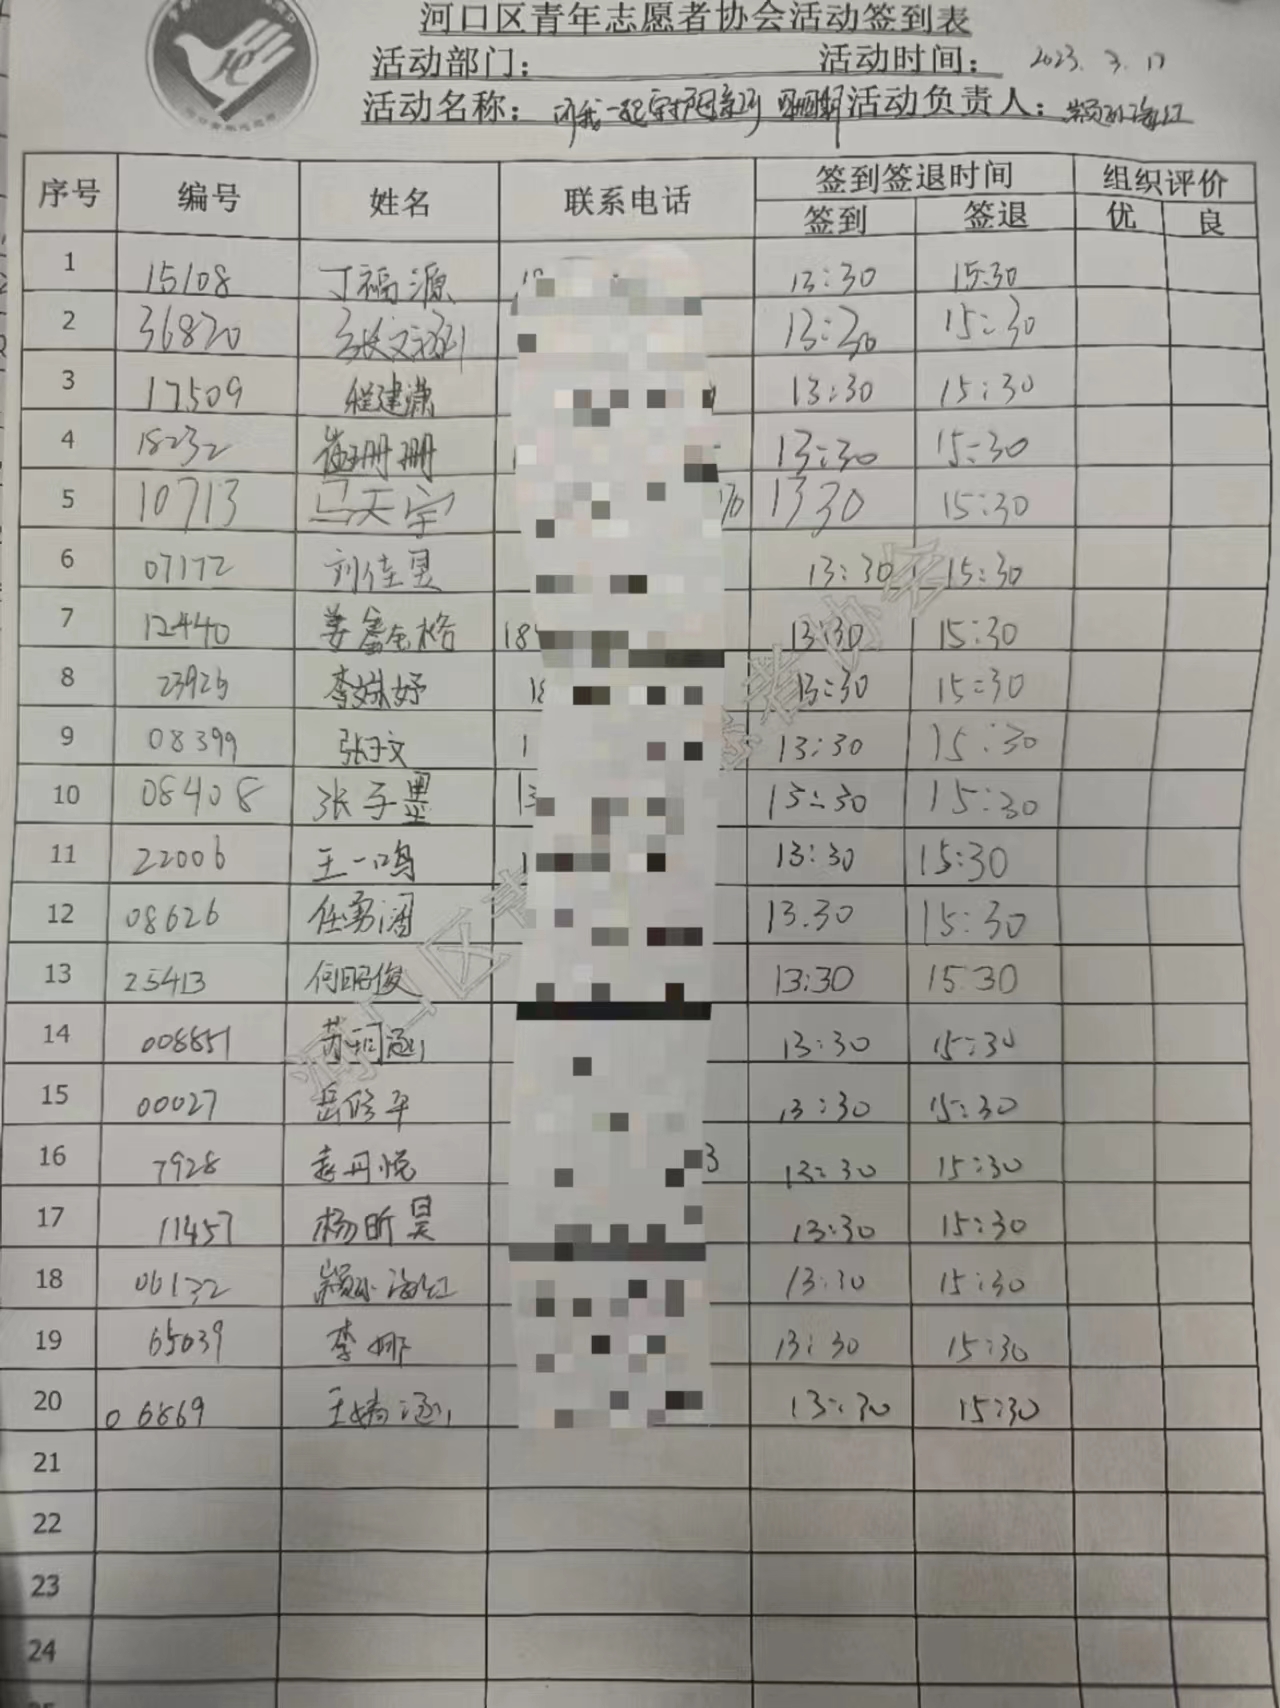 河口区青年志愿者协会活动签到表
活动部门： 活动时间： 2023.3.17
活动名称： 活动负责人： 颛孙海红
序号 编号 姓名 联系电话 签到签退时间 组织评价
签到 签退 优 良
1 15108 丁福源 13:30 15:30
2 36820 张文涵 13:30 15:30
3 17509 程建潇 13:30 15:30
4 18232 崔珊珊 13:30 15:30
5 10713 马天宇 1330 15:30
6 07172 刘佳昱 13:30 15:30
7 12440 姜鑫格 18 13:30 15:30
8 23926 李姝妤 13:30 15:30
9 08399 张子文 1 13:30 15:30
10 08408 张子墨 13:30 15:30
11 22006 王一鸣 13:30 15:30
12 08626 任勇 13.30 15:30
13 25413 何昭俊 13:30 15:30
14 008851 苏珂涵 13:30 15:30
15 00027 岳修平 13:30 15:30
16 7928 袁丹悦 3 13:30 15:30
17 11457 杨昕昊 13:30 15:30
18 06132 颛孙海红 13:30 15:30
19 65039 李娜 13:30 15:30
20 06869 王婧涵 13:30 15:30
21
22
23
24
河口区青 志愿者协会